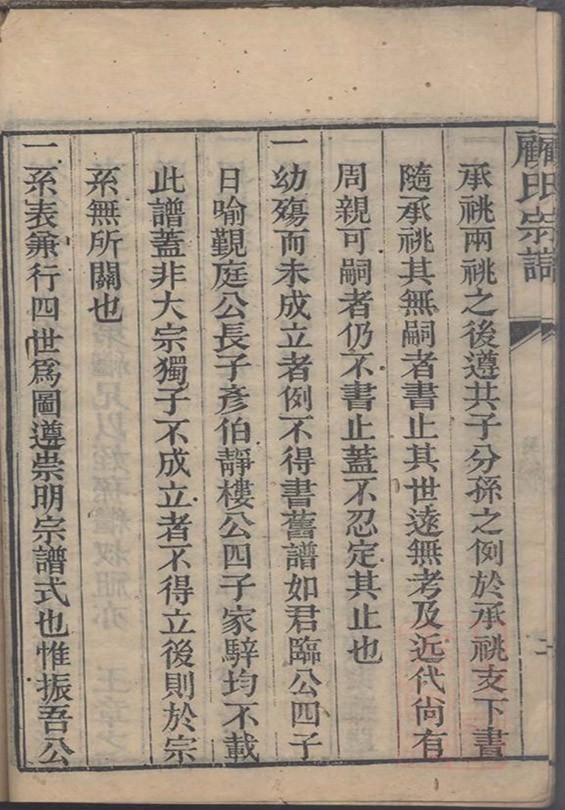 顧氏宗譜
承祧兩祧之後遵其子分孫之例於承祧支下書
隨承祧其無嗣者書止其世遠無考及近代尚有
周親可嗣者仍不書止蓋不忍定其止也
一幼殤而未成立者例不得書舊譜如君臨公四子
日喻觀庭公長子彥伯靜樓公四子家騂均不載
此譜蓋非大宗獨子不成立者不得立後則於宗
系無所關也
一系表兼行四世爲圖遵崇明宗譜式也惟振吾公